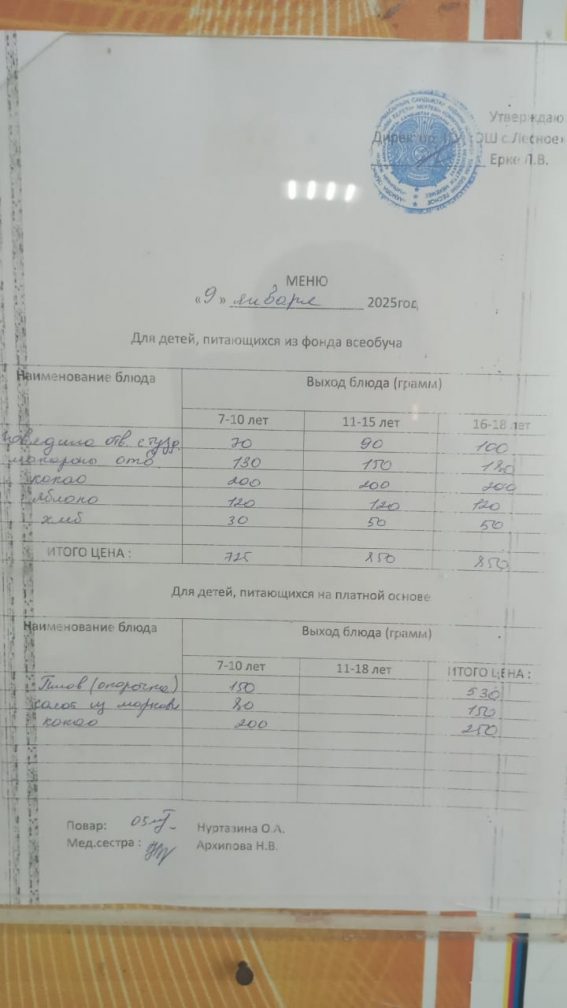 Утверждаю
Директор ОШ с.Лесное
Ерке Л.В.
МЕНЮ
« 9 » января 2025год
Для детей, питающихся из фонда всеобуча
Наименование блюда Выход блюда (грамм)
7-10 лет 11-15 лет 16-18 лет
отв. 70 90 100
макароны отв 130 150 180
какао 200 200 200
яблоко 120 120 120
хлеб 30 50 50
ИТОГО ЦЕНА : 725 850 850
Для детей, питающихся на платной основе
Наименование блюда Выход блюда (грамм)
7-10 лет 11-18 лет ИТОГО ЦЕНА :
Плов 150 530
салат из моркови 80 150
какао 200 250
Повар: Нуртазина О.А.
Мед.сестра : Архипова Н.В.